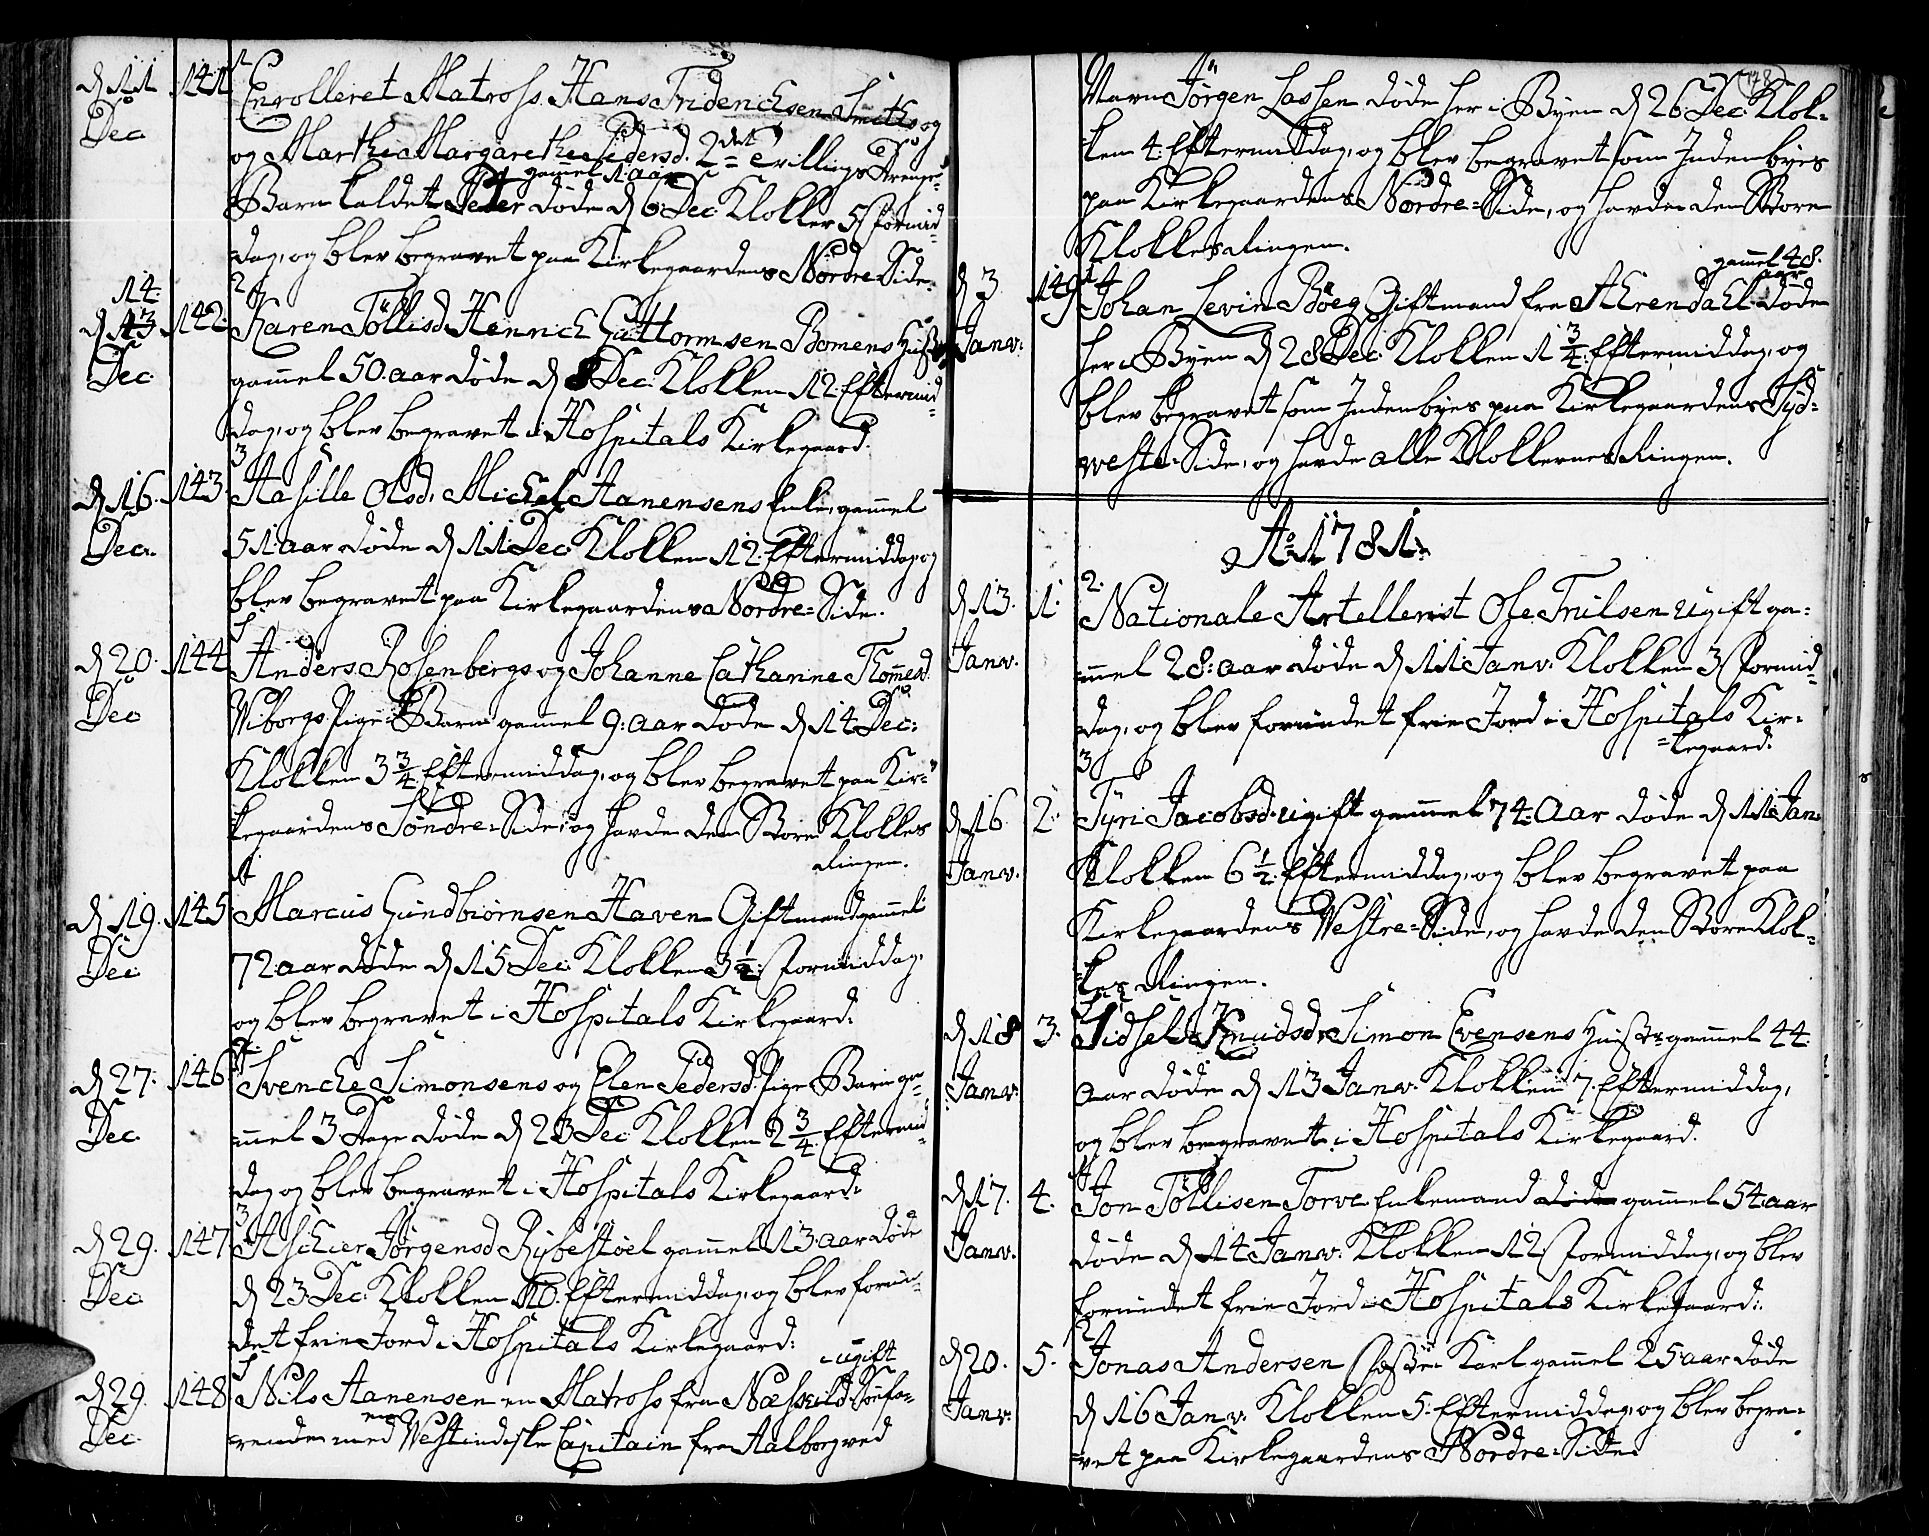 d 11 141 Enrolleret Matross. Hans Fridericksen Smiths og
Dec og Marthe Margarethe Pedersd. 2det Tvillings Drenge=
gammel 1. aar
Barn kaldet Peter døde d 6 Dec Klokken 5 Formid=
dag, og blev begravet paa Kirkegaardens Nordre Side.
2
14.
d 13 142. Karen Töllisd. Henrich Guttormsen Bomens Hustr
Dec. gammel 50. aar døde d 8 Dec. Klokken 12 Eftermid=
dag, og blev begravet i Hospitals Kirkegaard.
3
d 16. 143. Aasille Olsd. Michel Aanensens Enke, gammel
Decr. 51. aar døde d 11 Dec. Klokken 12. Eftermiddag, og
blev begravet paa Kirkegaardens Nordre=Side.
d 20. 144 Anders Rosenbergs og Johanne Catharine Thommesd
Dec Viborgs Pige=Barn gammel 9: aar døde d 14 Dec:
Klokken 3 3/4 Eftermiddag, og blev begravet paa Kir=
kegaardens Søndre=Side, og havde den Store Klokkes
Ringen.
1
d 19. 145 Marcus Gundbiørnsen Haven Giftmand gammel
Dec 72 aar døde d 15 Dec Klokken 3 1/2 Formiddag,
og blev begravet i Hospitals Kirkegaard.
d 27. 146 Svencke Simonsens og Elen Pedersd. Pige Barn ga=
Dec. mmel 3 Dage døde d 23 Dec Klokken 2 3/4. Eftermid=
dag og blev begravet i Hospitals Kirkegaard.
3
d 29. 147 Aschier Jørgensd Rybestøel gammel 13. aar døde
Dec. d 23 Dec. Klokken 10. Eftermiddag, og blev forun=
det frie Jord i Hospitals Kirkegaard:
ugift
d 29. 148 Nils Aanensen en Matross fra
Dec. rende med Vestindiske Capitain fra Aalborg ved
148
Navn Jörgen Lassen døde her i Byen d 26 Dec. Klok=
ken 4. Eftermiddag, og blev begravet som Indenbyes
paa Kirkegaardens Nordre=Side, og havde den Store
Klokkes Ringen.
gammel 48.
aar
d 3 149 Johan Levin Böeg Giftmand fra Ahrendahl døde
Janv. her i Byen d 28 Dec. Klokken 1 3/4. Eftermiddag, og
blev begravet som Indenbyes paa Kirkegaardens Syd=
veste=Side, og havde alle Klokkernes Ringen.
Ao 1781.
2.
d 13. 1. Nationale Artellerist Ole Trulsen ugift ga=
Janv. mmel 28: aar døde d 11 Janv. Klokken 3 Formid=
dag, og blev forundet frie Jord i Hospitals Kir=
=kegaard.
3
d 16 2. Tyri Jacobsd. ugift gammel 74. Aar døde d 11 Jan.
Janv. Klokken 6 1/2. Eftermiddag, og blev begravet paa
Kirkegaardens Vestre=Side, og havde den Store Klok=
kes Ringen.
d 18 3. Sidsele Knudsdr Simon Evensens Hustr gammel 44.
Janv. aar døde d 13 Janv. Klokken 7. Eftermiddag,
og blev begravet i Hospitals Kirkegaard.
1
d 17. 4. Jon Töllisen Torve Enkemand døde gammel 54 aar
Janv. døde d 14 Janv. Klokken 12 Formiddag, og blev
forundet frie Jord i Hospitals Kirkegaard.
2
d 20. 5. Jonas Andersen Karl gammel 25 aar døde
Janv. d 16 Janv. Klokken 5. Eftermiddag, og blev begra=
=vet paa Kirkegaardens Nordre=Side.